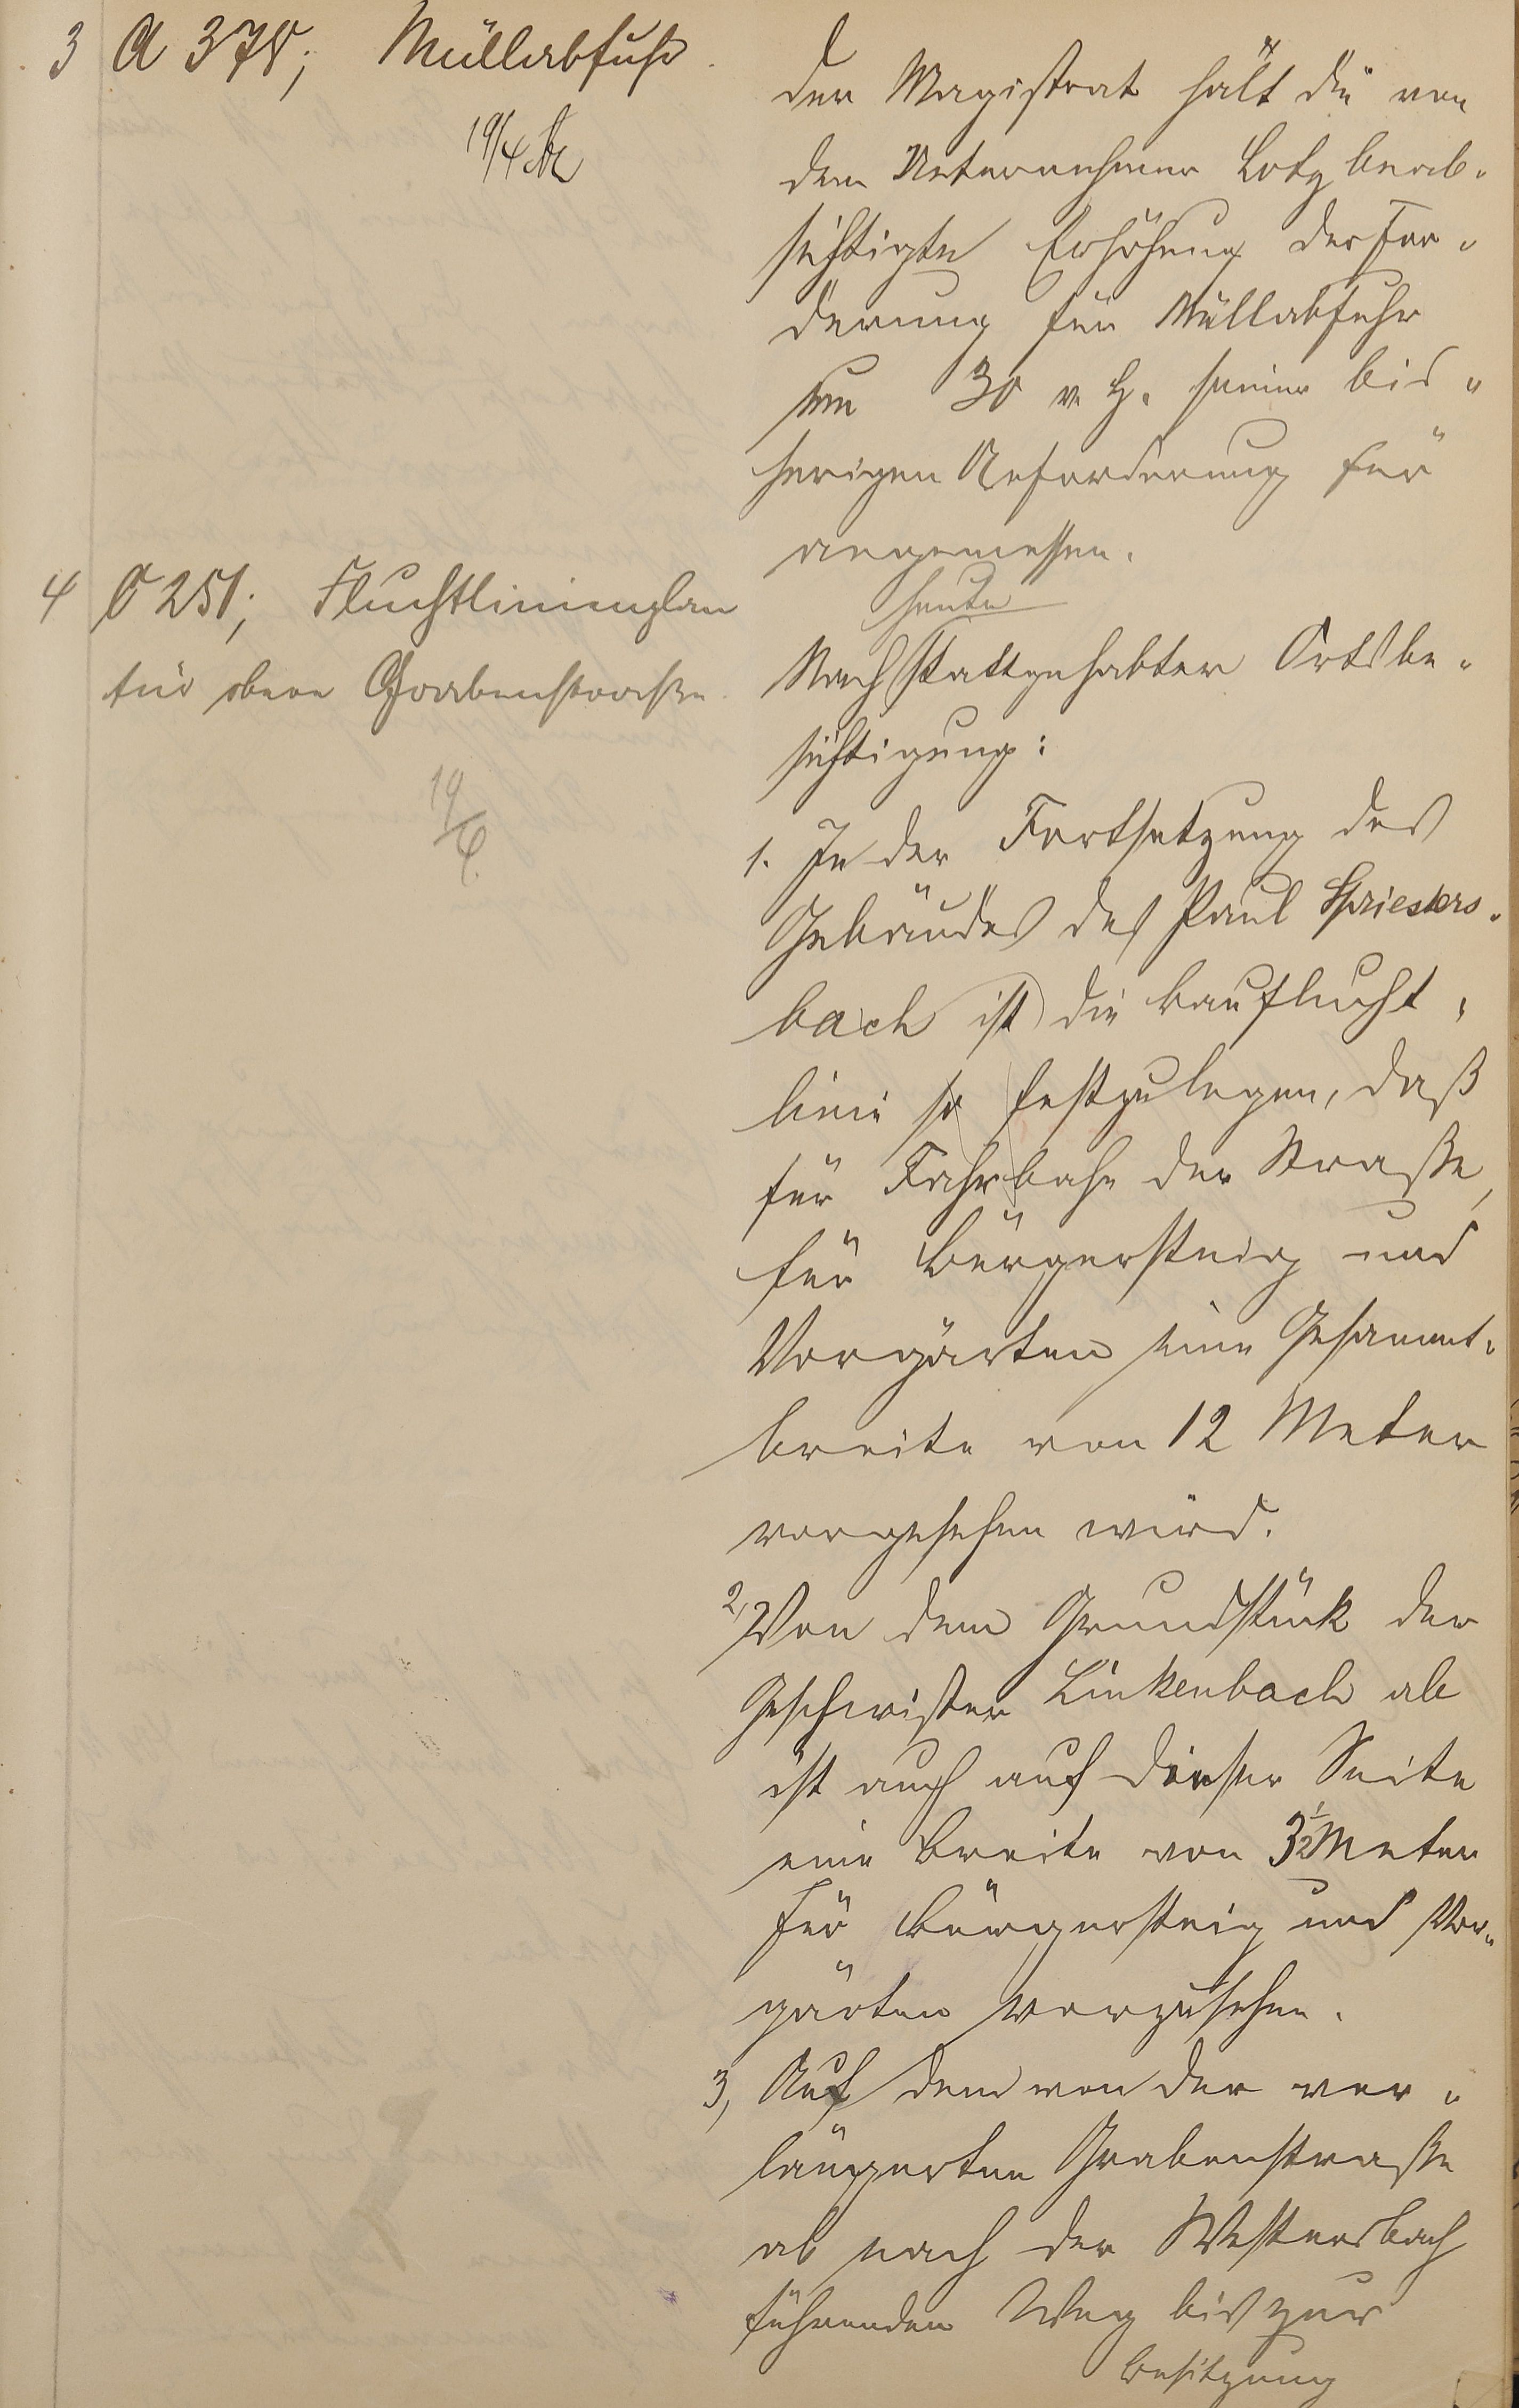 3 A 378; Müllabfuhr.
19/4
Der Magistrat hält die von
dem Unternehmer Lotz beab-
sichtigte Erhöhung der For-
derung für Müllabfuhr
um 30 v. H. seiner bis-
herigen Anforderung für
angemessen.
4 C 251; Fluchtlinienplan
für obere Grabenstraße.
19/4.
heute
Nach stattgehabter Ortsbe-
sichtigung:
1. In der Fortsetzung des
Gebäudes des Paul Spriesters-
bach ist die Bauflucht-
linie so festzulegen, daß
für Fahrbahn der Straße,
für Bürgersteig und
Vorgärten eine Gesammt-
breite von 12 Meter
vorgesehen wird.
2, Von dem Grundstück der
Geschwister Linkenbach ab
ist auch auf dieser Seite
eine Breite von 3 1/2 Meter
für Bürgersteig und Vor-
gärten vorzusehen.
3, Auf dem von der ver-
längerten Grabenstraße
ab nach der Westersbach
führenden Weg bis zur
Besitzung